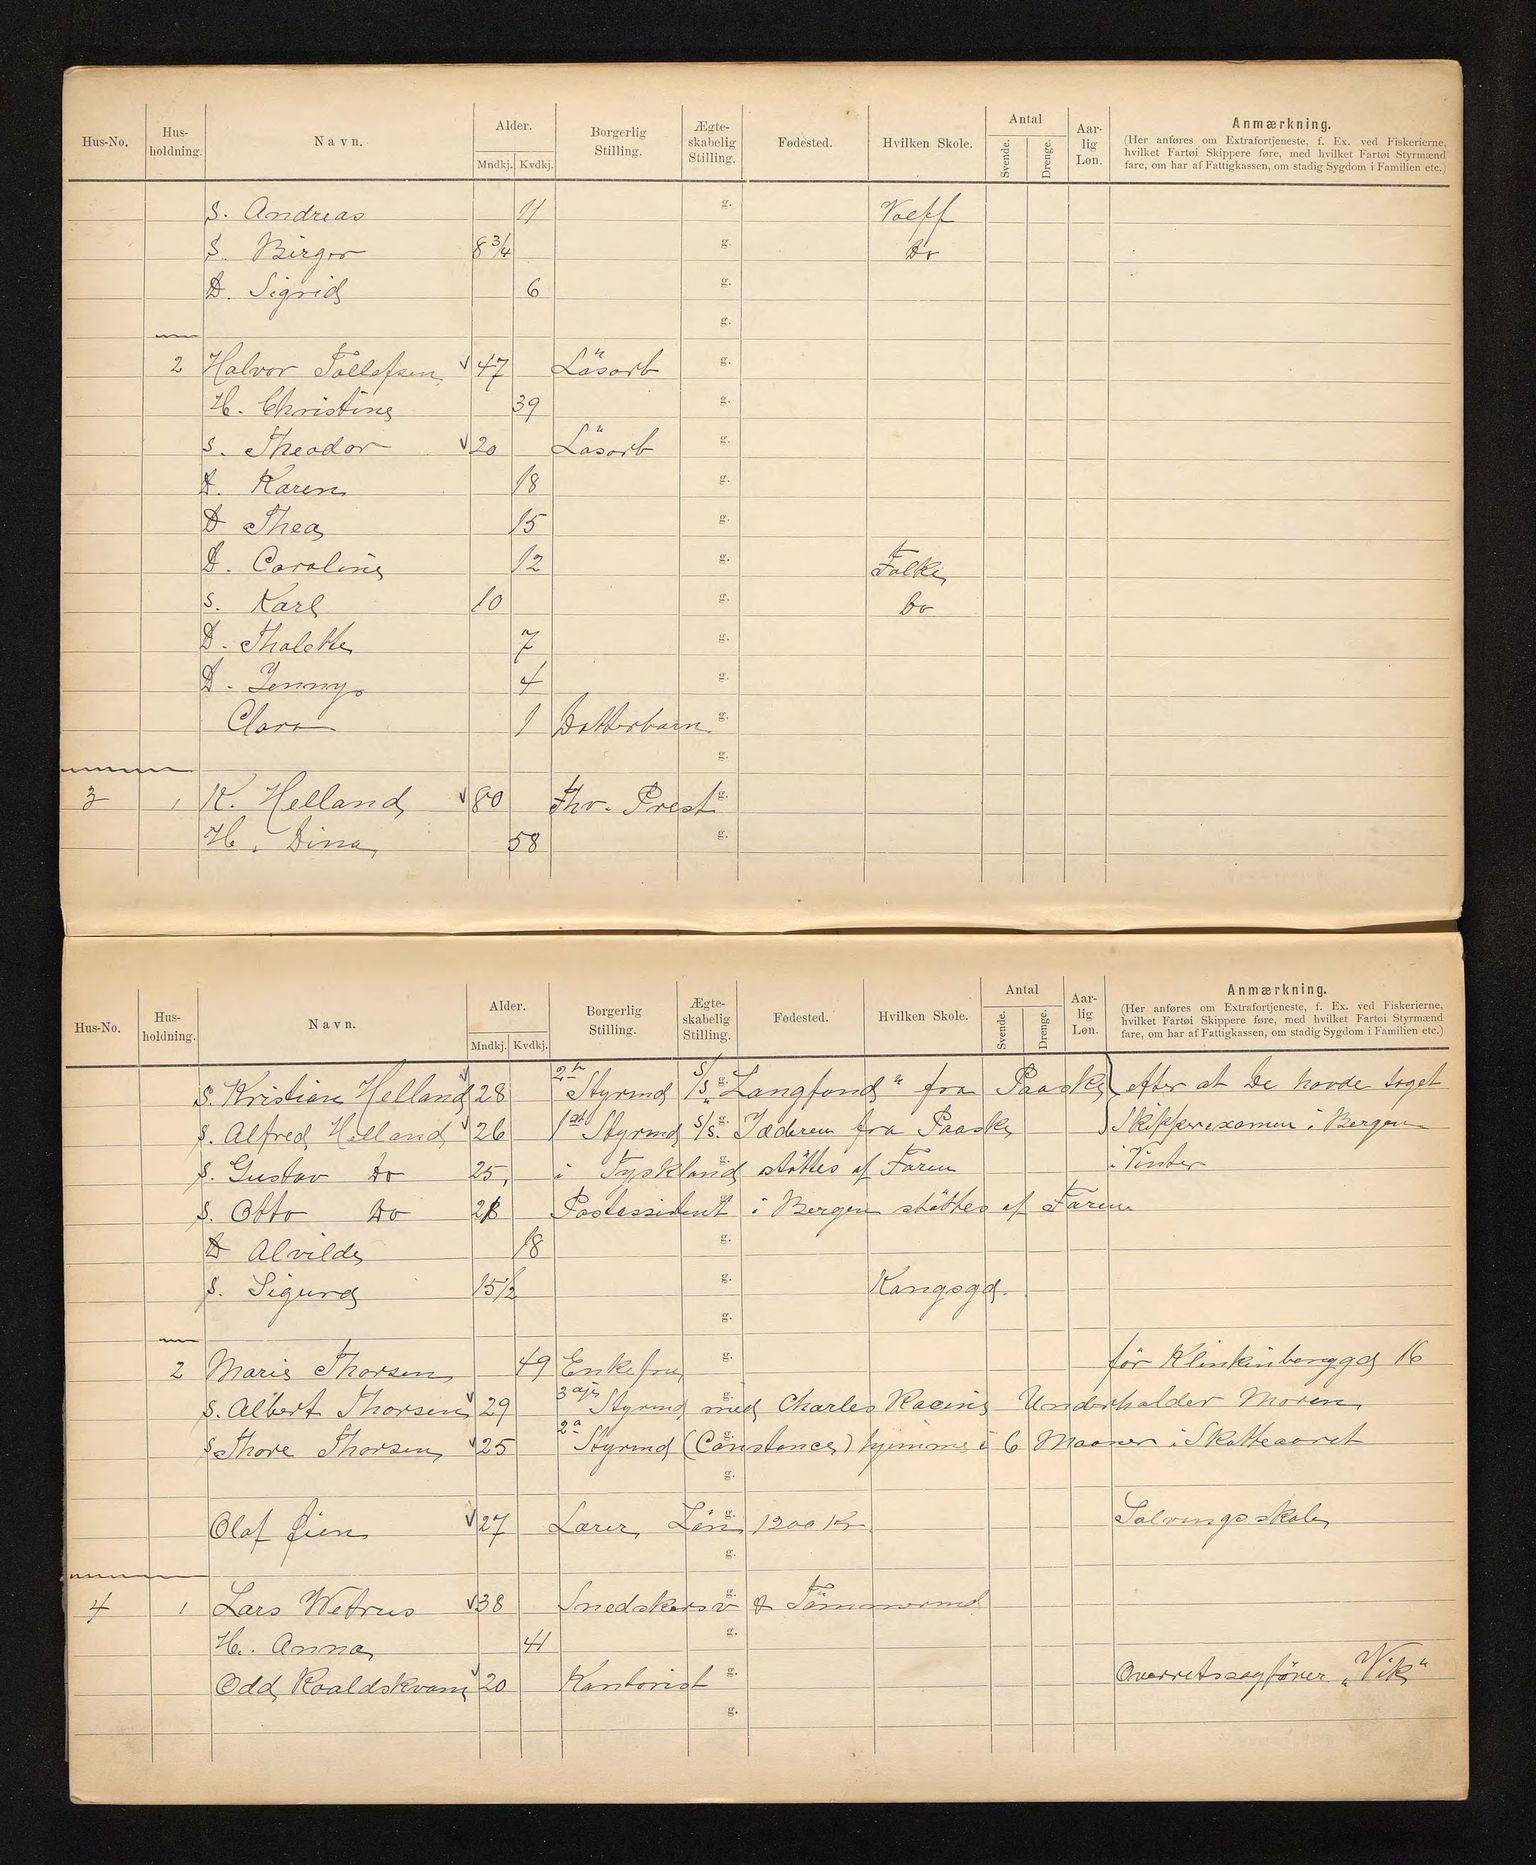 Hus-No. Hus-holdning. Navn. Alder. Mndkj. Kvdkj. Borgerlig Stilling. Ægte-skabelig Stilling. Fødested. Hvilken Skole. Antal Svende. Drenge. Aar-lig Løn. Anmærkning.
(Her anføres om Extrafortjeneste, f. Ex. ved Fiskerierne,
hvilket Fartøi Skippere føre, med hvilket Fartøi Styrmænd
fare, om har af Fattigkassen, om stadig Sygdom i Familien etc.)
S. Andreas 11 g.
S. Birger 8 3/4 g. Do
D. Sigrid 6 g.
g.
2 Halvor Tollefsen 47 Løsarb g.
H. Christine 39 g.
S. Theodor 20 Løsarb g.
D. Karen 18 g.
D Thea 15 g.
D. Caroline 12 g. Folke
S. Karl 10 g. Do
D. Thalette 7 g.
D. Jenny 4 g.
Clara 1 Datterbarn g.
g.
3 1 K. Helland 80 Fhv. Prest g.
H. Dina 58 g.
Hus-No. Hus-holdning. Navn. Alder. Mndkj. Kvdkj. Borgerlig Stilling. Ægte-skabelig Stilling. Fødested. Hvilken Skole. Antal Svende. Drenge. Aar-lig Løn. Anmærkning.
(Her anføres om Extrafortjeneste, f. Ex. ved Fiskerierne,
hvilket Fartøi Skippere føre, med hvilket Fartøi Styrmænd
fare, om har af Fattigkassen, om stadig Sygdom i Familien etc.)
S. Kristian Helland 28 2n Styrmd S/S g. „Langfond" fra Paaske efter at De havde taget
S. Alfred Helland 26 1st Styrmd S/S. g. Jæderen fra Paaske Skipperexamen i Bergen
S. Gustav Do 25, i Tyskland g. støttes af Faren i Vinter
S. Otto Do Postassistent g. i Bergen støttes af Faren
D Alvilde 18 g.
S. Sigurd 15 1/2 g. Kongsgd.
g.
2 Marie Thorsen 49 Enkefru g. før Klinkenberggd 16
S. Albert Thorsen 29 Styrmd g. med Charles Racine Underholder Moren
S Thore Thorsen 25 2a Styrmd g. (Constance) hjemme i 6 Maaner i Skatteaaret
g.
Olaf Øien 27 Lærer Løn g. 1200 Kr Solvingsskole
g.
4 1 Lars Wetrus 38 Snedkersv g. & Tømmermd
H. Anna 41 g.
Odd Roaldskvam 20 Kontorist g. Overretssagfører „Vik"
g.